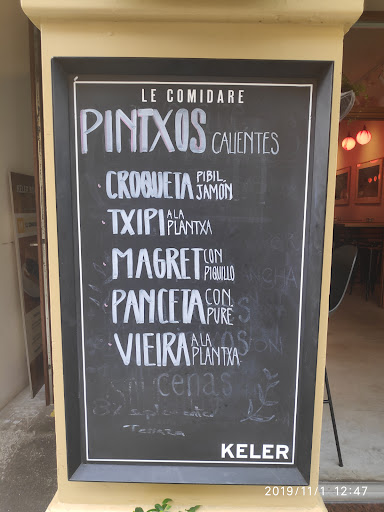 LE COMIDARE
PINTXOS CALIENTES
· CROQUETA PIBIL, JAMÓN
· TXIPI A LA PLANTXA
· MAGRET CON PIQUILLO
· PANCETA CON PURÉ
· VIEIRA A LA PLANTXA
cenas
KELER
2019/11/1 12:47